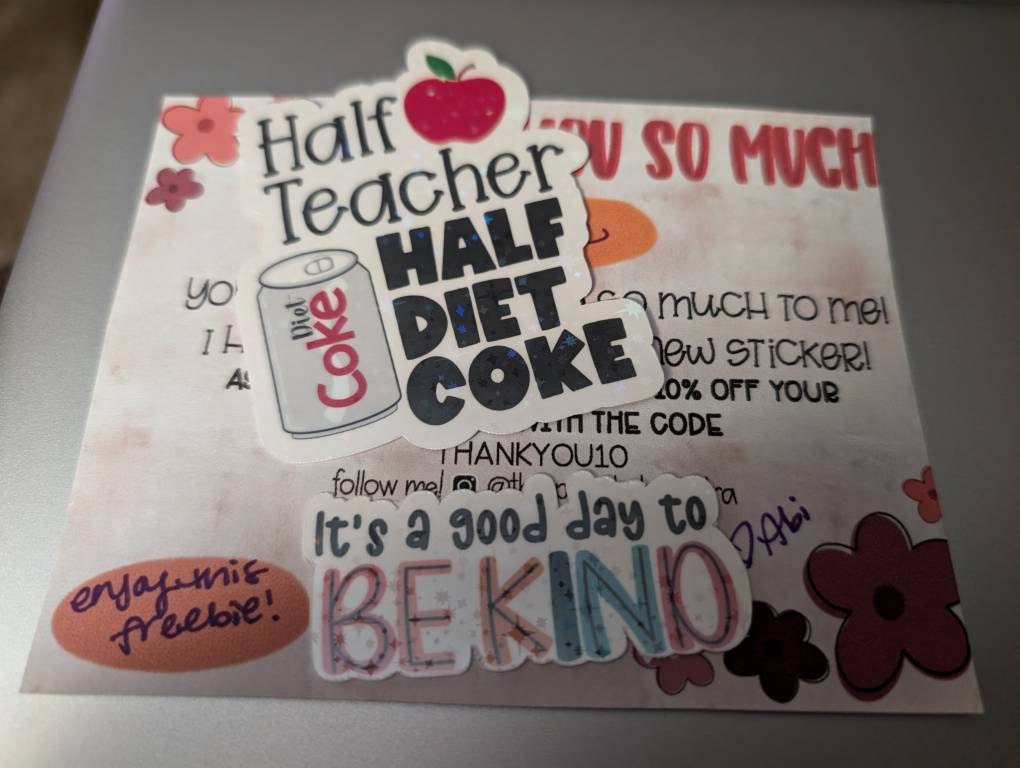 Half
Teacher
HALF
DIET
COKE
Diet
Coke
YOU SO MUCH
SO MUCH TO ME!
I
NEW STICKER!
10% OFF YOUR
WITH THE CODE
THANKYOU10
follow me!
It's a good day to
BE KIND
Abi
enjoy this
freebie!